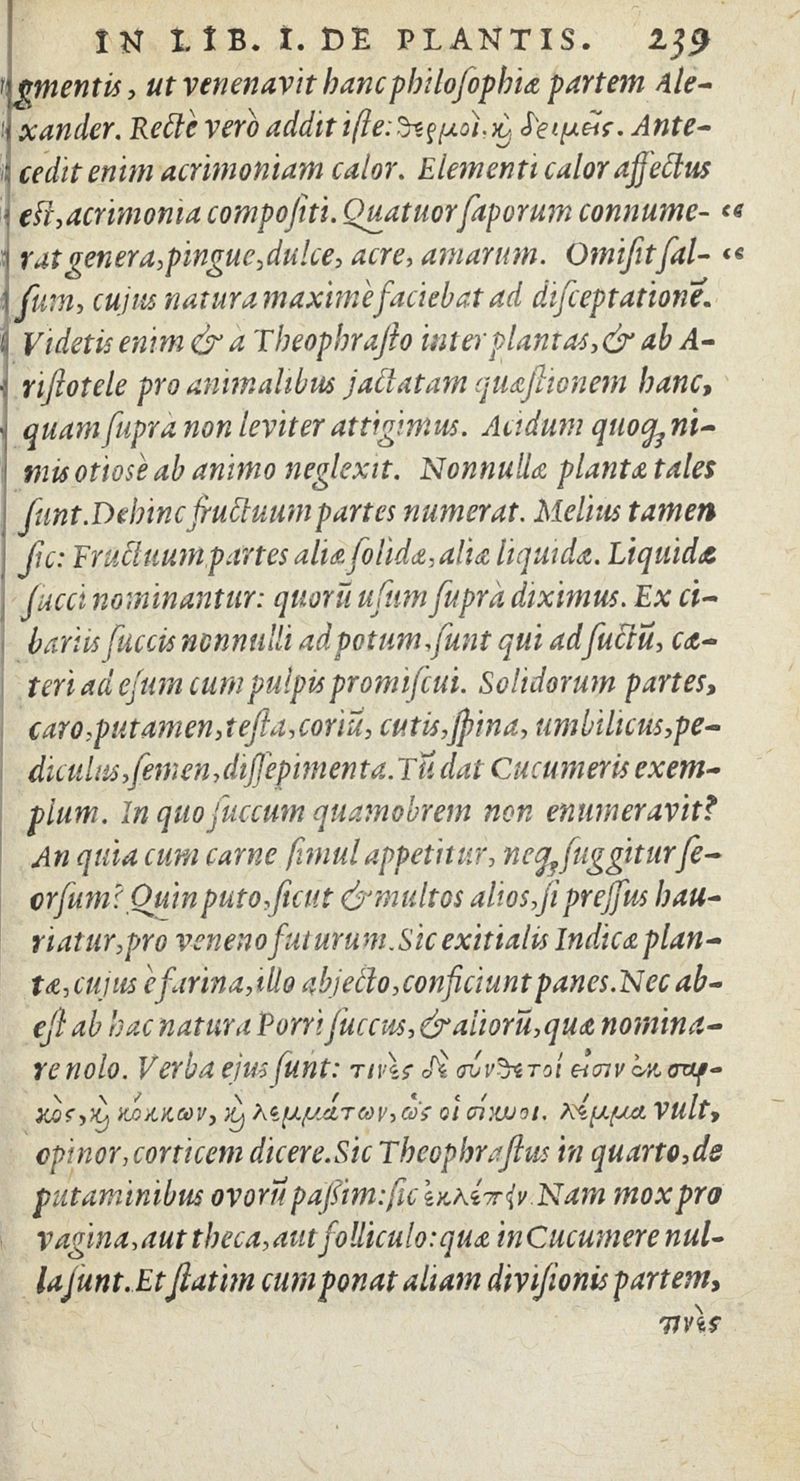 IN LIB. I. DE PLANTIS. 239
gmentis, ut venenavit hanc philosophiæ partem Ale-
xander. Rectè verò addit iste: θερμοὶ, ϗ δριμεῖς. Ante-
cedit enim acrimoniam calor. Elementi calor affectus
est, acrimonia compositi. Quatuor saporum connume- “
rat genera, pingue, dulce, acre, amarum. Omisit sal- “
sum, cujus natura maximè faciebat ad disceptationē.
Videtis enim & à Theophrasto inter plantas, & ab A-
ristotele pro animalibus jactatam quæstionem hanc,
quam suprà non leviter attigimus. Acidum quoq; ni-
mis otiosè ab animo neglexit. Nonnullæ plantæ tales
sunt. Dehinc fructuum partes numerat. Melius tamen
sic: Fructuum partes aliæ solidæ, aliæ liquidæ. Liquidæ
succi nominantur: quorū usum suprà diximus. Ex ci-
bariis succis nonnulli ad potum, sunt qui ad suctū, cæ-
teri ad esum cum pulpis promiscui. Solidorum partes,
caro, putamen, testa, coriū, cutis, spina, umbilicus, pe-
diculus, semen, dissepimenta. Tū dat Cucumeris exem-
plum. In quo succum quamobrem non enumeravit?
An quia cum carne simul appetitur, neq; suggitur se-
orsum? Quin puto, sicut & multos alios, si pressus hau-
riatur, pro veneno futurum. Sic exitialis Indicæ plan-
tæ, cujus è farina, illo abjecto, conficiunt panes. Nec ab-
est ab hac natura Porri succus, & aliorū, quæ nomina-
re nolo. Verba ejus sunt: τινὲς δὲ σύνθετοί εἰσιν ἐκ σαρ-
κὸς, ϗ κόκκων, ϗ λεμμάτων, ὡς οἱ σίκυοι. λέμμα vult,
opinor, corticem dicere. Sic Theophrastus in quarto, de
putaminibus ovorū paßim: sic ἐκλέπειν. Nam mox pro
vagina, aut theca, aut folliculo: quæ in Cucumere nul-
la sunt. Et statim cum ponat aliam divisionis partem,
τινὲς